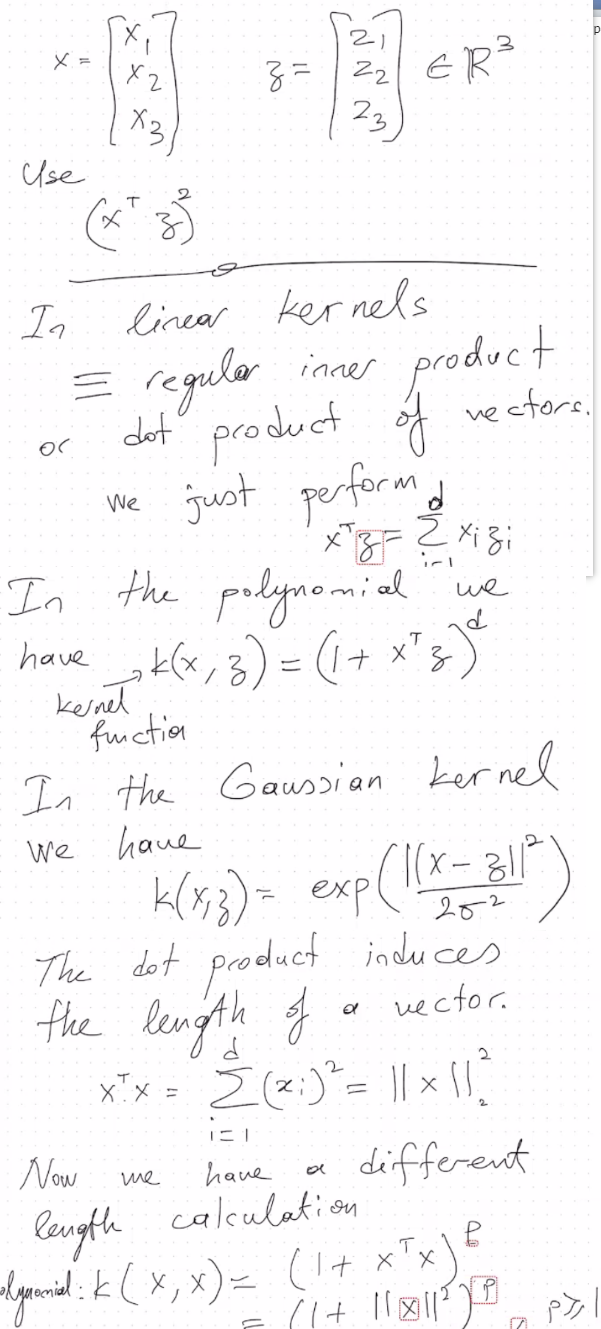 x = [x₁ x₂ x₃] z = [z₁ z₂ z₃] ∈ ℝ³
Use
(xᵀ z)²
In linear kernels
≡ regular inner product
or dot product of vectors.
we just perform
xᵀz = Σ_{i=1}^{d} xᵢ zᵢ
In the polynomial we
have k(x, z) = (1 + xᵀz)ᵈ
kernel
function
In the Gaussian kernel
we have
k(x,z) = exp(||x - z||² / 2σ²)
The dot product induces
the length of a vector.
xᵀ.x = Σ_{i=1}^{d} (xᵢ)² = ||x||₂²
Now we have a different
length calculation
olynomial: k(x, x) = (1 + xᵀx)ᵖ
= (1 + ||x||²)ᵖ p ≥ 1